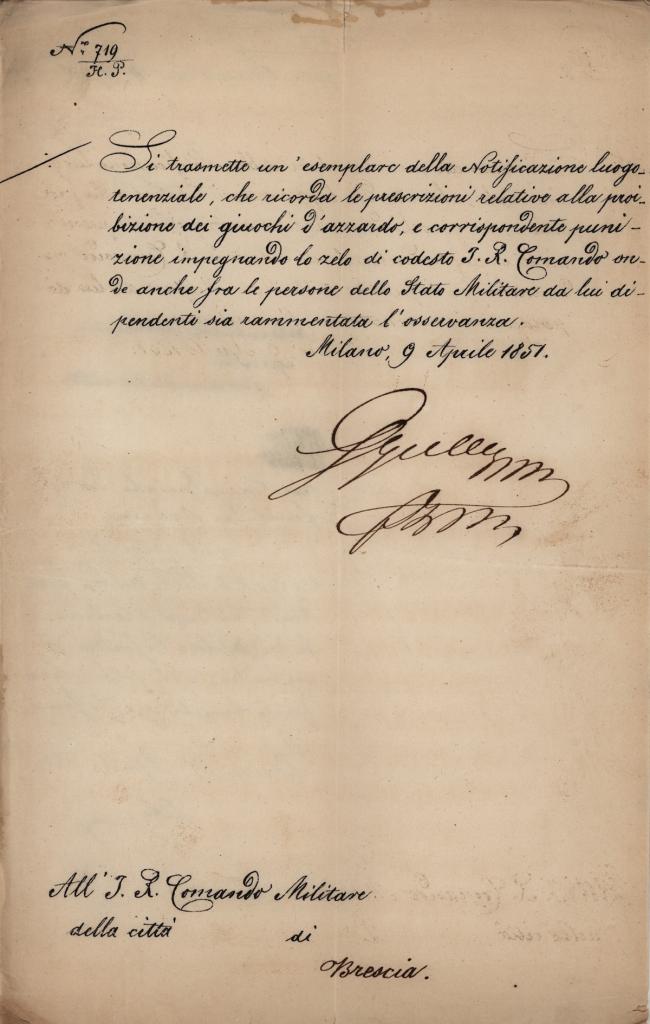 Nr. 719
H. P.
Si trasmette un' esemplare della Notificazione luogo-
tenenziale, che ricorda le prescrizioni relative alla proi-
bizione dei giuochi d'azzardo, e corrispondente puni-
zione impegnando lo zelo di codesto I. R. Comando on-
de anche fra le persone dello Stato Militare da lui di-
pendenti sia rammentata l'osservanza.
Milano, 9 Aprile 1851.
Gyulay
All' I. R. Comando Militare
della città di
Brescia.